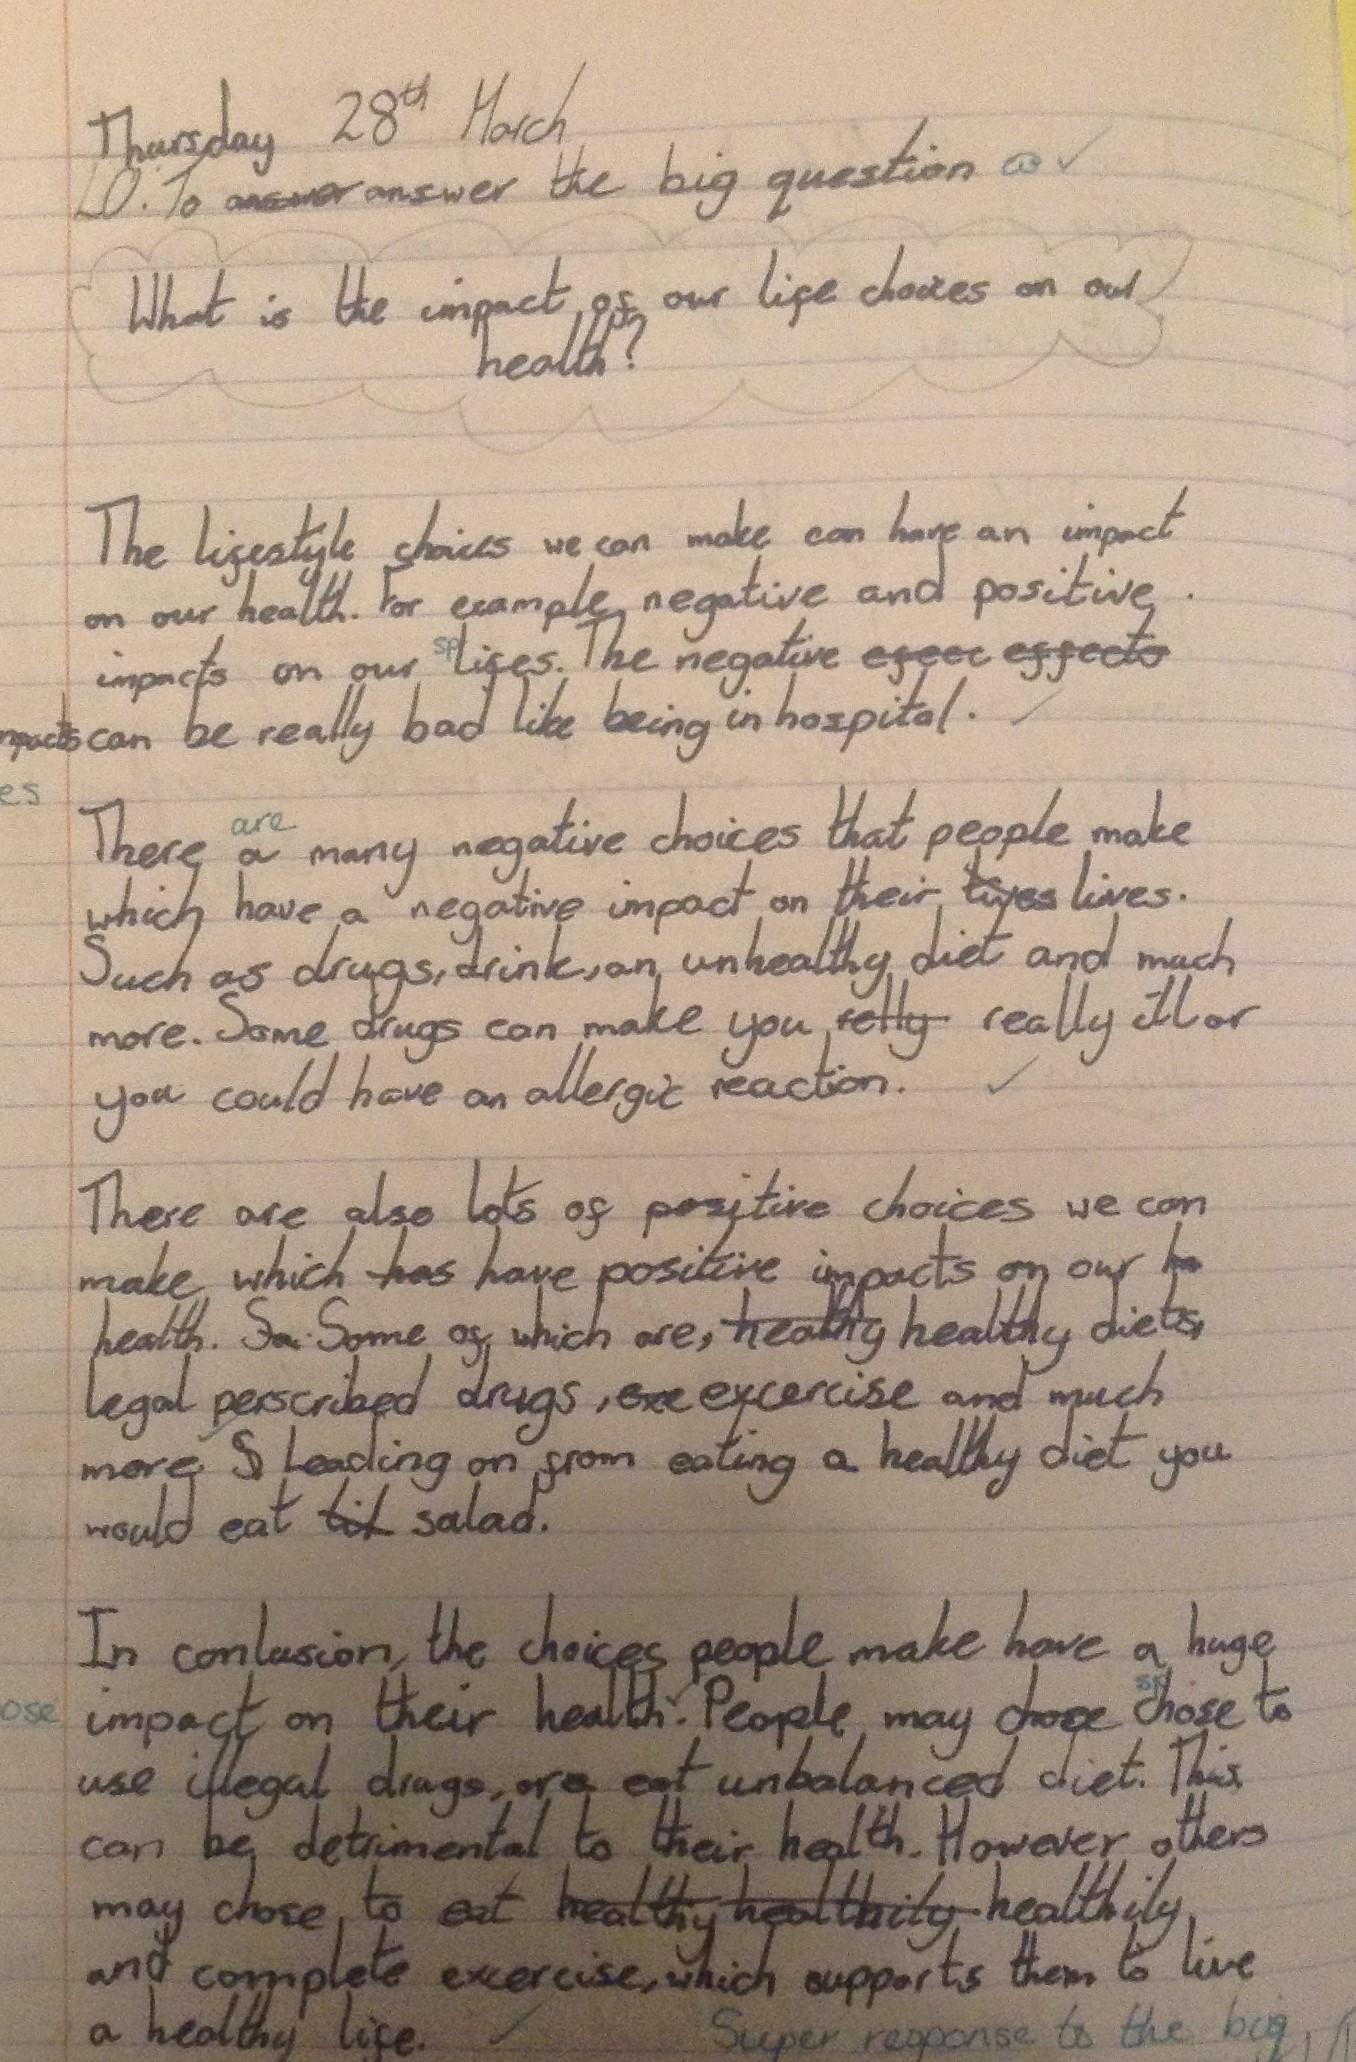 Thursday 28th March
LO. To answer answer the big question
What is the impact of our life choices on our
health?
The lifestyle choices we can make can have an impact
on our health. For example, negative and positive
impacts on our sp lifes. The negative efeec effects
can be really bad like being in hospital.
es
are
There a many negative choices that people make
which have a negative impact on their lives lives.
Such as drugs, drink, an unhealthy diet and much
more. Some drugs can make you relly really ill or
you could have an allergic reaction.
There are also lots of positive choices we can
make which has have positive impacts on our ha
health. So. Some of which are, healthy healthy diets,
legal perscribed drugs, exe excercise and much
more. S Leading on from eating a healthy diet you
would eat salad.
In conlusion, the choices people make have a huge
impact on their health. People may chose sp chose to
ose
use illegal drugs, or a eat unbalanced diet. This
can be detrimental to their health. However others
may chose to eat healthy healthily healthily
and complete excercise, which supports them to live
a healthy life.
Super response to the big